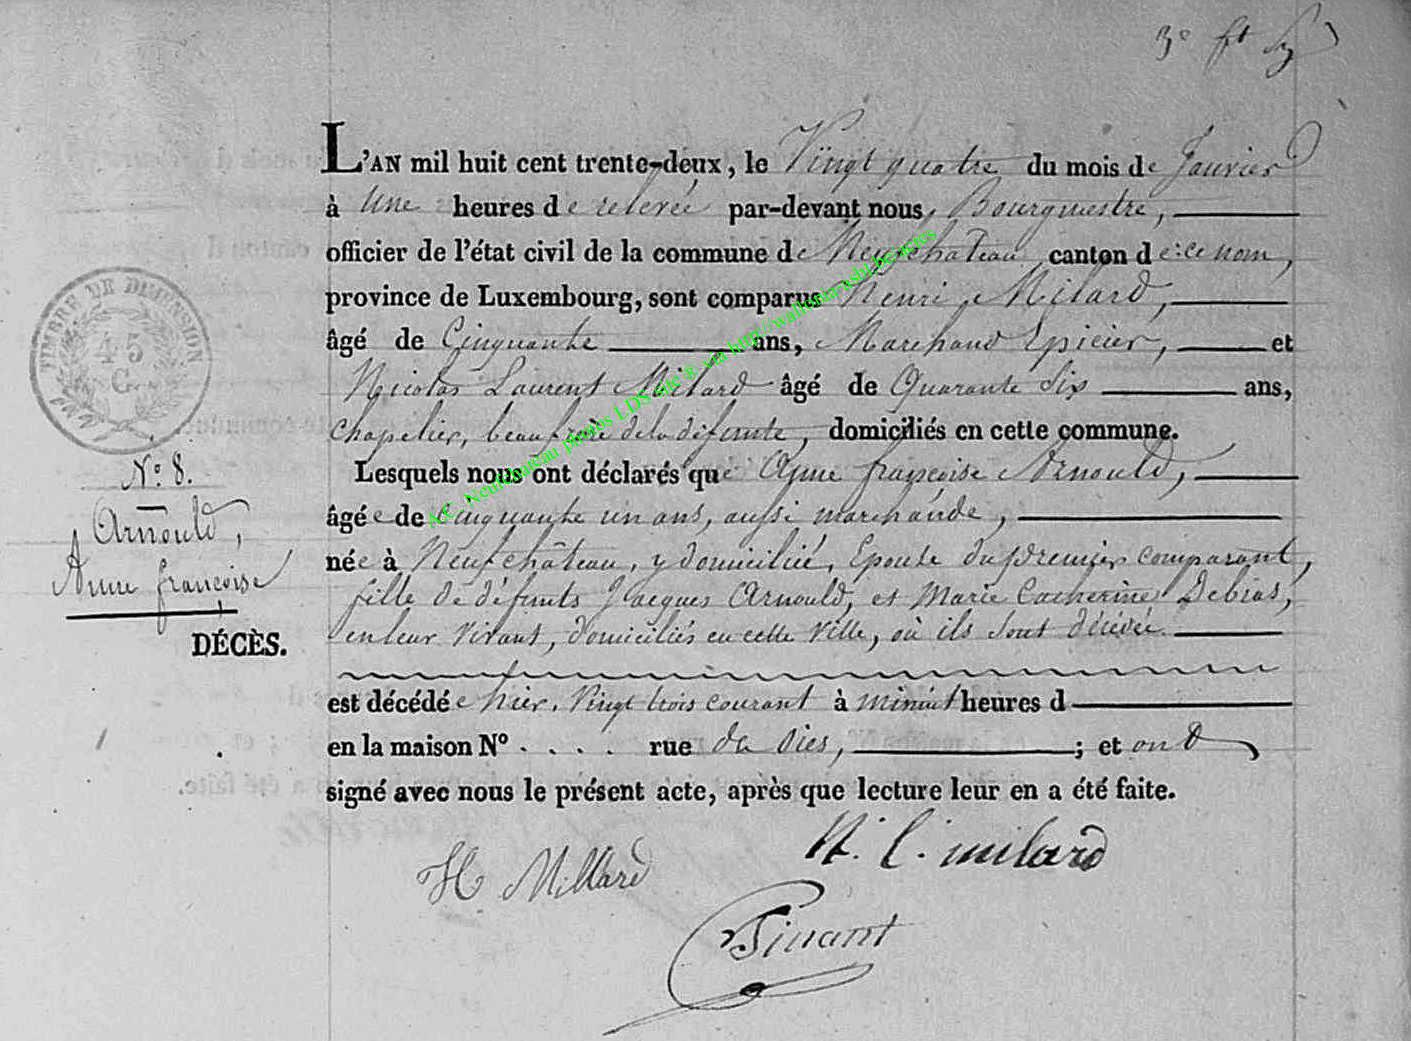 3e
L'AN mil huit cent trente-deux, le Vingt quatre du mois de Janvier
à Une heures de relevée par-devant nous, Bourguestre,
officier de l'état civil de la commune de Neufchateau canton de ce nom,
province de Luxembourg, sont comparus Henri Milard,
âgé de Cinquante ans, Marchand Epicier, et
Nicolas Laurent Milard âgé de Quarante Six ans,
chapelier, beaufrère de la défunte, domiciliés en cette commune.
Lesquels nous ont déclarés que Anne françoise Arnould,
âgée de cinquante un ans, aussi marchande,
née à Neufchâteau, y domiciliée, Epouse du premier comparant,
fille de défunts Jacques Arnould, et Marie Catherine Debias,
en leur vivant, domiciliés en cette ville, où ils sont décédés
est décédée hier, Vingt trois courant à minuit heures d
en la maison No . . . . rue ; et ont
signé avec nous le présent acte, après que lecture leur en a été faite.
TIMBRE DE DIMENSION
45
C.
No. 8.
Arnould,
Anne françoise
DÉCÈS.
H. Millard
N. L. milard
A.C. Neufchateau photos LDS site ® via http://wallonia-asbl.be/actes